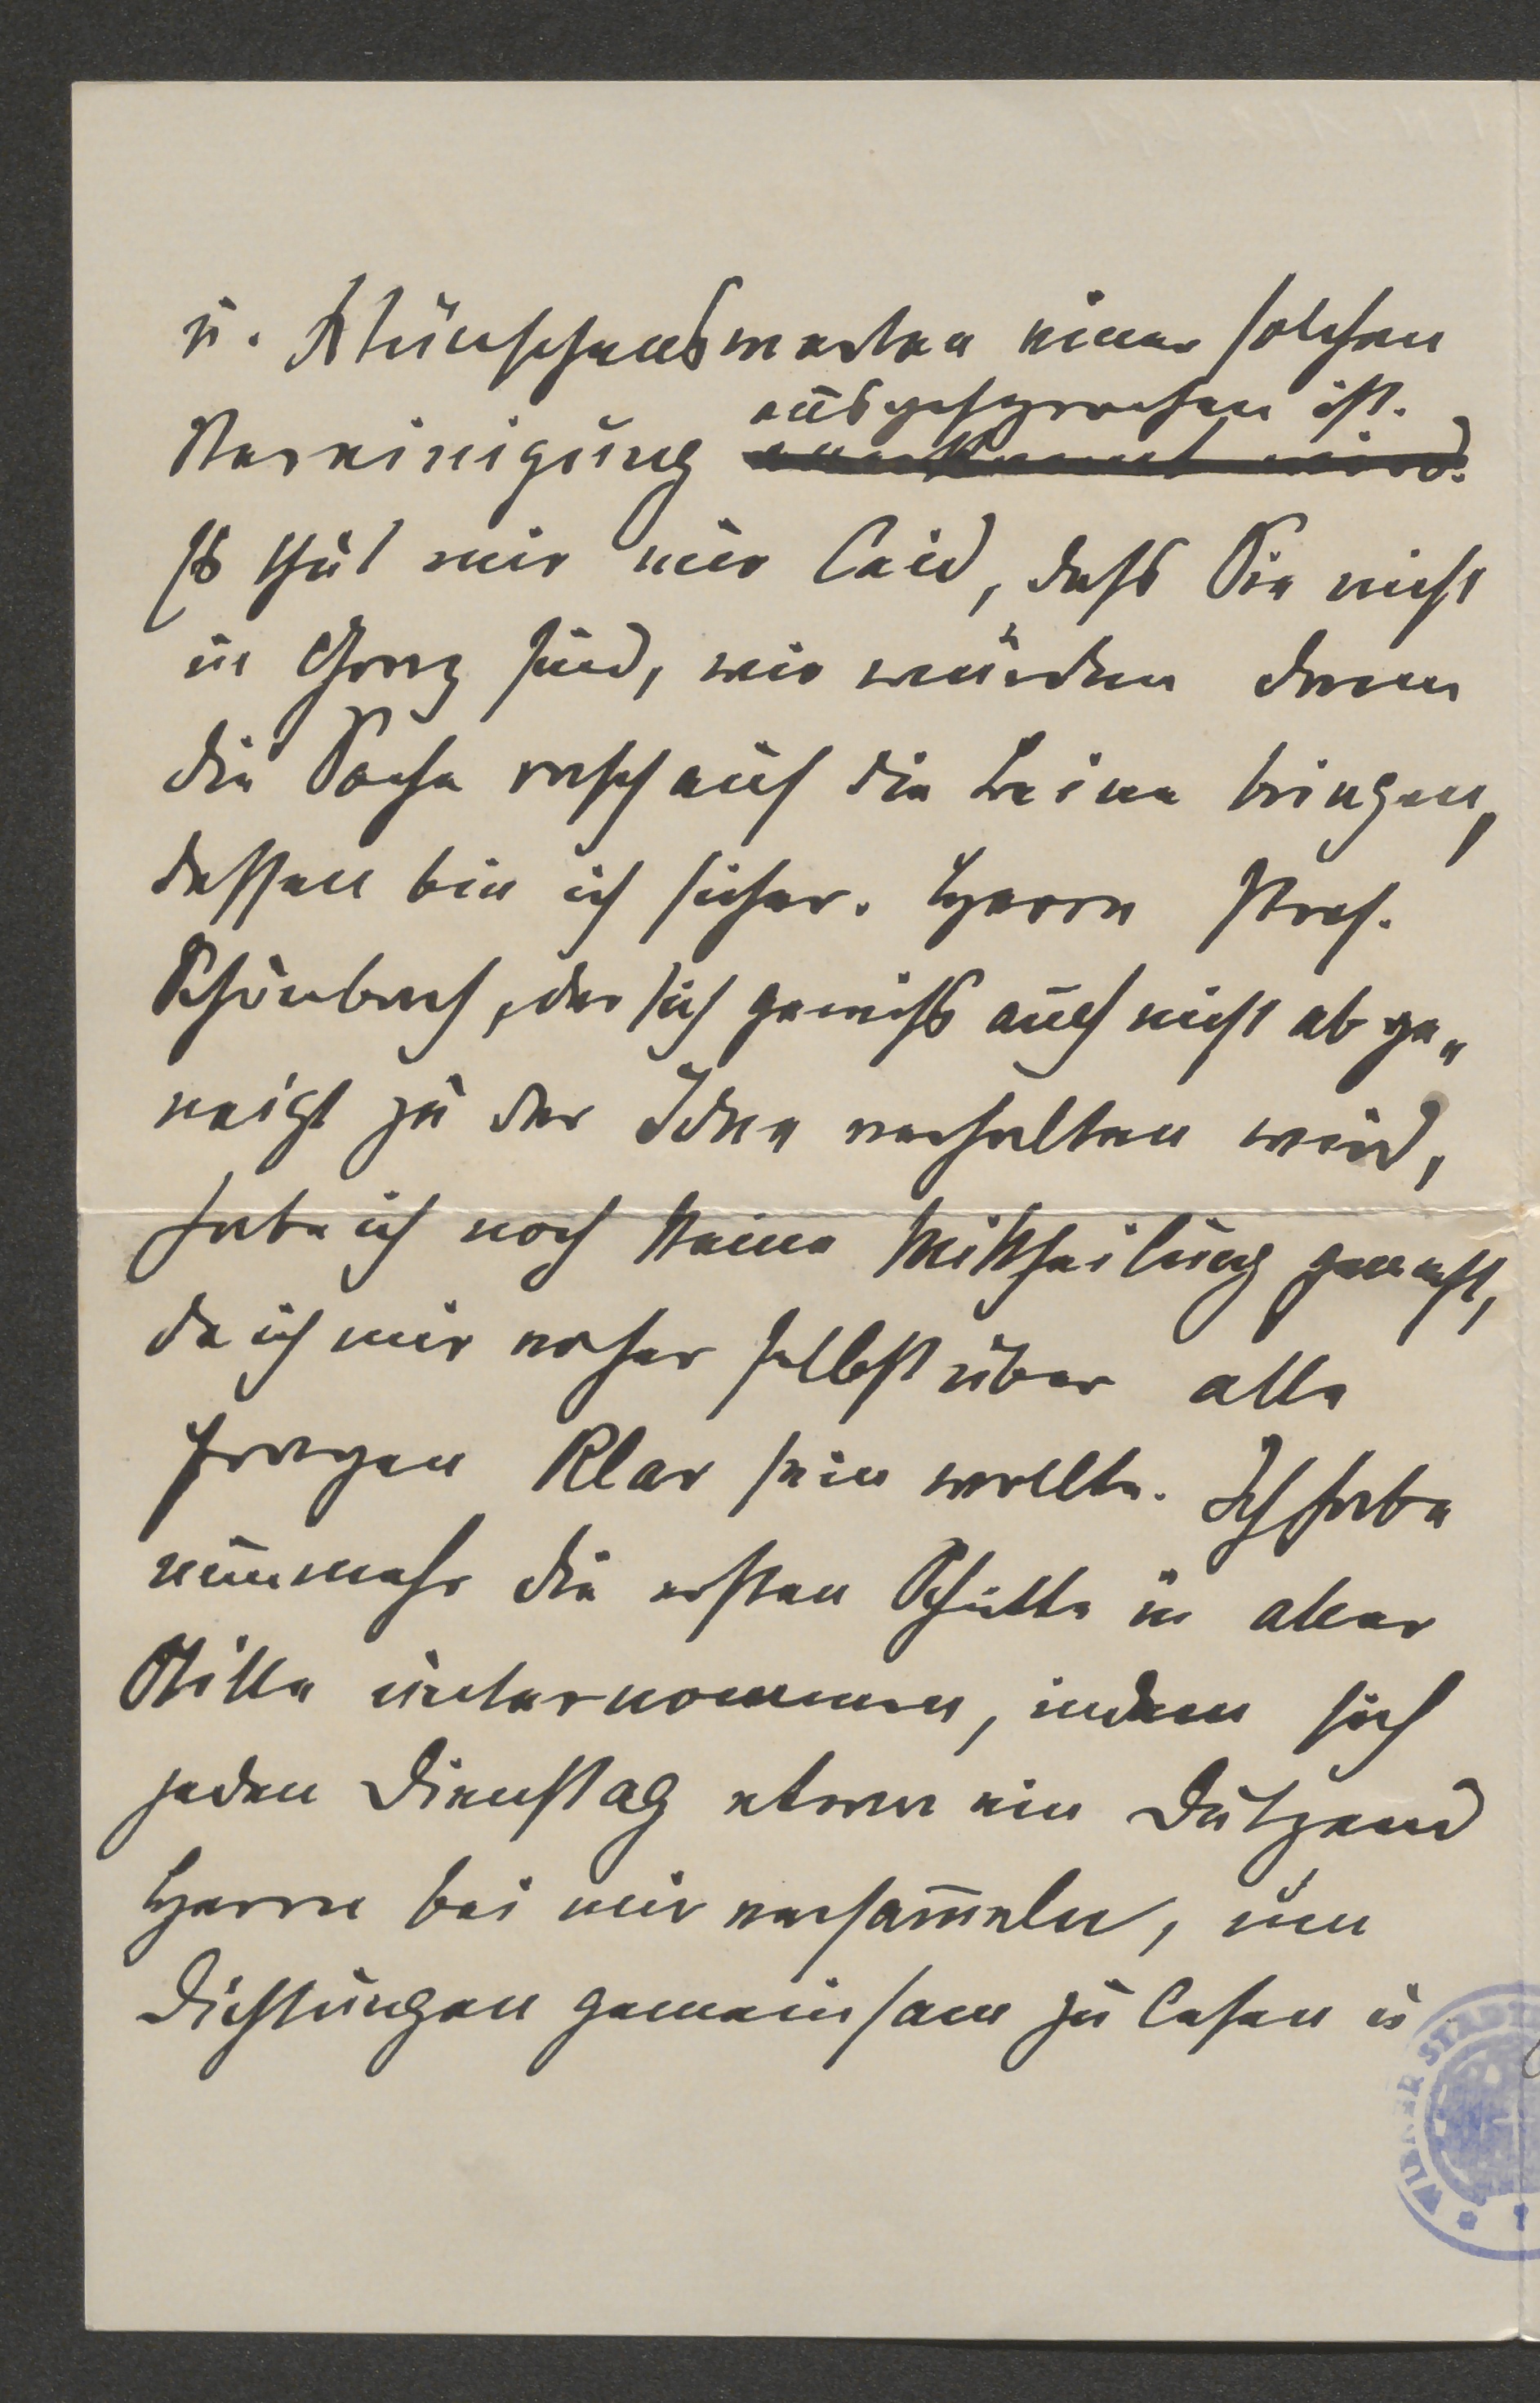 u. Wünschenswerten einer solchen
ausgesprochen ist.
Vereinigung anerkannt wird.
Es thut mir nur Leid, dass Sie nicht
in Graz sind, wir würden dann
die Sache rasch auf die Beine bringen,
dessen bin ich sicher. Herrn Prof.
Schönbach, der sich gewiss auch nicht abge„
neigt zu der Idee verhalten wird,
habe ich noch keine Mittheilung gemacht,
da ich mir vorher selbst über alle
Fragen klar sein wollte. Ich habe
nunmehr die ersten Schritte in aller
Stille unternommen, indem sich
jeden Dienstag etwa ein Dutzend
Herrn bei mir versam̄eln, um
Dichtungen gemeinsam zu lesen u
WIENER STADT